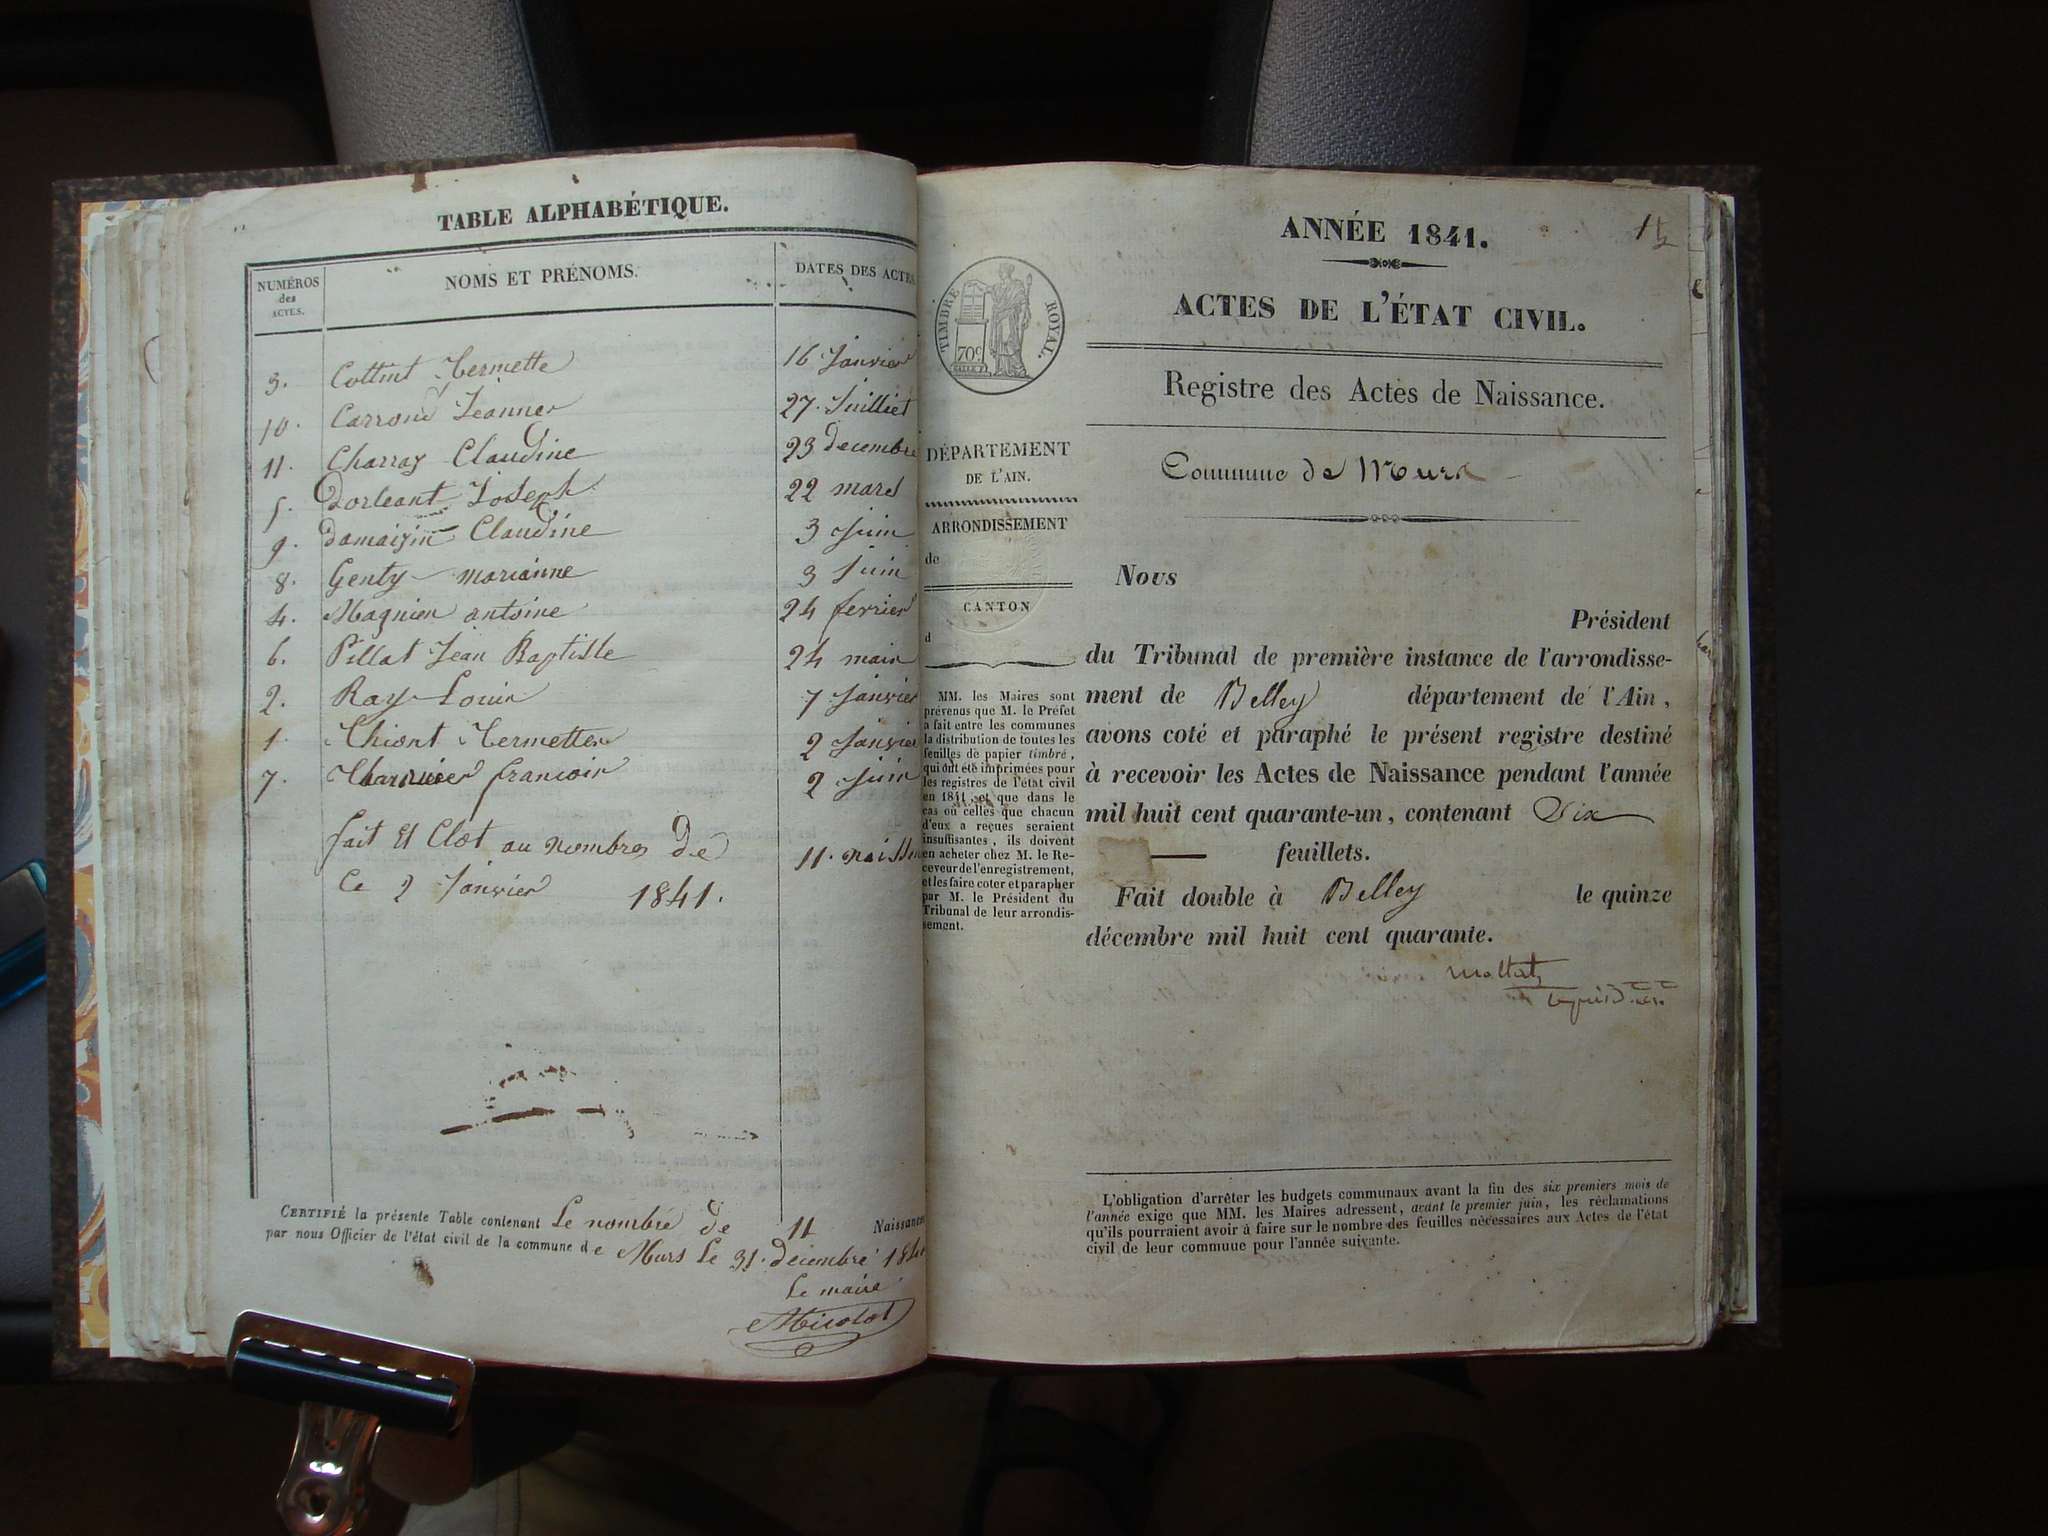 TABLE ALPHABÉTIQUE.
NUMÉROS
des
ACTES.
NOMS ET PRÉNOMS.
DATES DES ACTES
3. 16 Janvier
10. Jeanne 27. Juilliet
11. Charray Claudine 23 decembre
5. Dorleant Joseph 22 mars
9. Damaisin Claudine 3 Juin
8. Genty marianne 3 Juin
4. Magnien antoine 24 fevrier
6. Pillat Jean Baptiste 24 mai
2. Ray Louis 7 Janvier
1. 2 Janvier
7. francois 2 Juin
fait Et Clot au nombres De 11. naissa
Ce 2 Janvier 1841.
CERTIFIÉ la présente Table contenant Le nombre de 11 Naissances
par nous Officier de l'état civil de la commune de Murs Le 31. decembre 184
Le maire
Micolot
1
ANNÉE 1841.
ACTES DE L'ÉTAT CIVIL.
TIMBRE ROYAL.
70c
Registre des Actes de Naissance.
Commune de Murs
DÉPARTEMENT
DE L'AIN.
ARRONDISSEMENT
de
CANTON
d
MM. les Maires sont
prévenus que M. le Préfet
a fait entre les communes
la distribution de toutes les
feuilles de papier timbré,
qui ont été imprimées pour
les registres de l'état civil
en 1841, et que dans le
cas où celles que chacun
d'eux a reçues seraient
insuffisantes, ils doivent
en acheter chez M. le Re-
ceveur de l'enregistrement,
et les faire coter et parapher
par M. le Président du
Tribunal de leur arrondis-
sement.
Nous
Président
du Tribunal de première instance de l'arrondisse-
ment de Belley département de l'Ain,
avons coté et paraphé le présent registre destiné
à recevoir les Actes de Naissance pendant l'année
mil huit cent quarante-un, contenant Dix
feuillets.
Fait double à Belley le quinze
décembre mil huit cent quarante.
L'obligation d'arrêter les budgets communaux avant la fin des six premiers mois de
l'année exige que MM. les Maires adressent, avant le premier juin, les réclamations
qu'ils pourraient avoir à faire sur le nombre des feuilles nécessaires aux Actes de l'état
civil de leur commune pour l'année suivante.